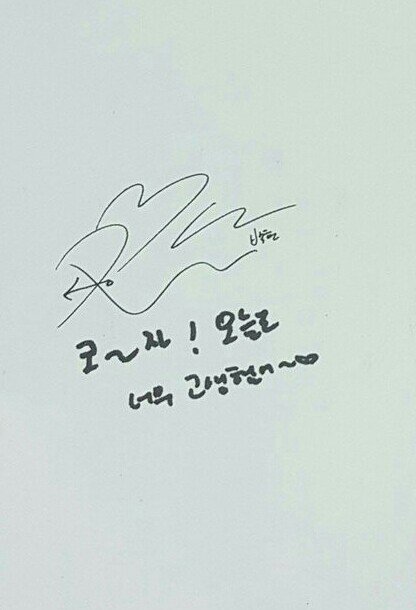 백현
코~자! 오늘도
너무 고생했어~♡